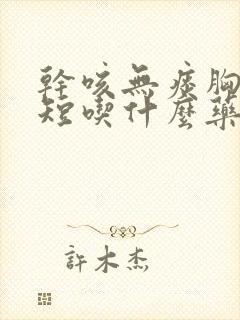 幹咳無痰胸
短喫什麼藥
許木杰